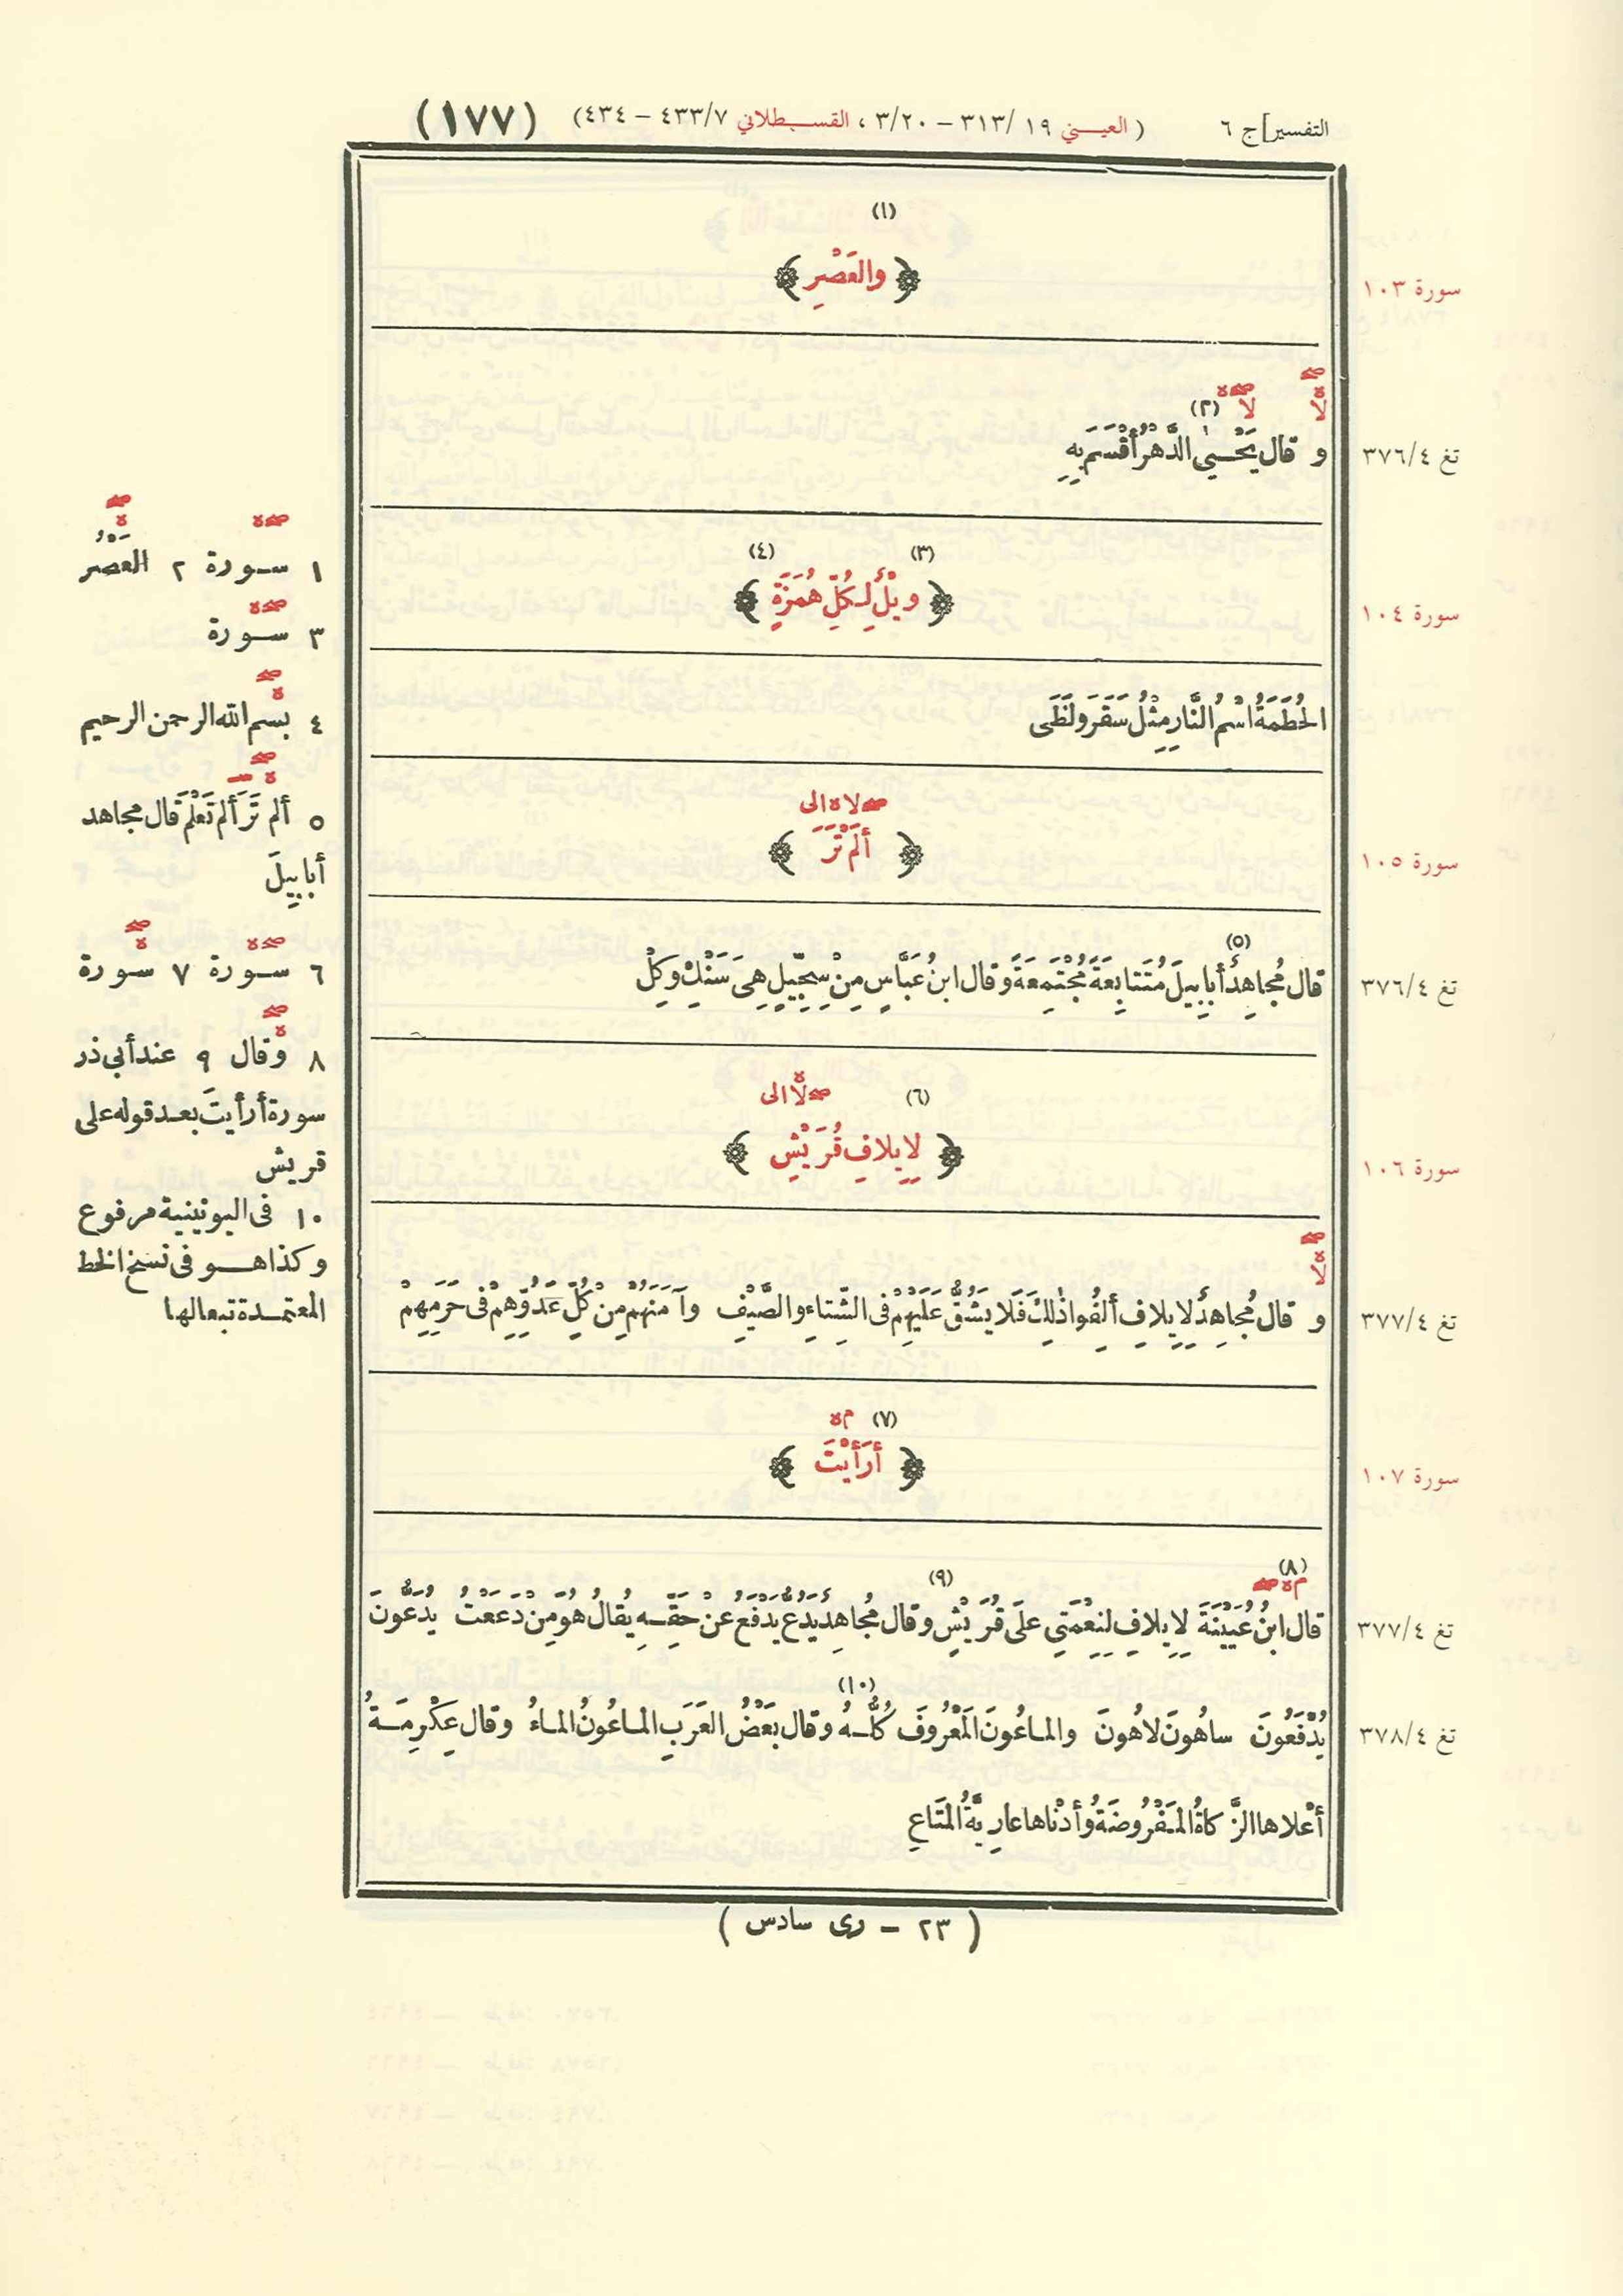 التفسير] ج ٦ (العيـني ١٩ /٣١٣ – ٣/٢٠ ، القسـطلاني ٤٣٣/٧ – ٤٣٤) (١٧٧)
(١)
سورة ١٠٣ ﴿والعَصْرِ﴾
(٢)
تغ ٣٧٦/٤ و قال يَحْـيٰ الدَّهْرُ أَقْسَمَ بِهِ
(٣) (٤)
سورة ١٠٤ ﴿ويْلٌ لِـكُلِّ هُمَزَةٍ﴾
الحُطَمَةُ اسْمُ النَّارِ مِثْلُ سَقَرَ ولَظَى
صـ لا ه الى
سورة ١٠٥ ﴿أَلَمْ تَرَ﴾
(٥)
تغ ٣٧٦/٤ قال مُجاهِدٌ أَبابِيلَ مُتَتابِعَةً مُجْتَمِعَةً وقال ابنُ عَبَّاسٍ مِنْ سِجِّيلٍ هِىَ سَنْكِ وكِلْ
(٦) صـ لا ه الى
سورة ١٠٦ ﴿لِإِيلافِ قُرَيْشٍ﴾
تغ ٣٧٧/٤ و قال مُجاهِدٌ لِإِيلافِ أَلِفُوا ذٰلِكَ فَلا يَشُقُّ عَلَيْهِمْ فى الشِّتاءِ والصَّيْفِ وآمَنَهُمْ مِنْ كُلِّ عَدُوِّهِمْ فى حَرَمِهِمْ
(٧) م ه
سورة ١٠٧ ﴿أَرَأَيْتَ﴾
(٨) (٩)
تغ ٣٧٧/٤ قال ابنُ عُيَيْنَةَ لِإِيلافِ لِنِعْمَتِي على قُرَيْشٍ وقال مُجاهِدٌ يَدُعُّ يَدْفَعُ عَنْ حَقِّـهِ يُقالُ هُوَ مِنْ دَعَعْتُ يُدَعُّونَ
(١٠)
تغ ٣٧٨/٤ يُدْفَعُونَ ساهُونَ لاهُونَ والماعُونَ المَعْرُوفَ كُلُّـهُ وقال بَعْضُ العَرَبِ الماعُونُ الماءُ وقال عِكْرِمَـةُ
أَعْلاها الزَّكاةُ المَفْرُوضَةُ وأَدْناها عارِيَّةُ المَتَاعِ
(٢٣ – رى سادس)
١ سـورة ٢ العَصْرُ
٣ سـورة
٤ بسم الله الرحمن الرحيم
٥ ألم تَرَ ألم تَعْلَمْ قال مجاهد
أبابِيلَ
٦ سـورة ٧ سورة
٨ وقال ٩ عند أبى ذر
سورة أرأيتَ بعد قوله على
قريش
١٠ فى اليونينية مرفوع
وكذا هـو فى نسخ الخط
المعتمـدة تبعا لها